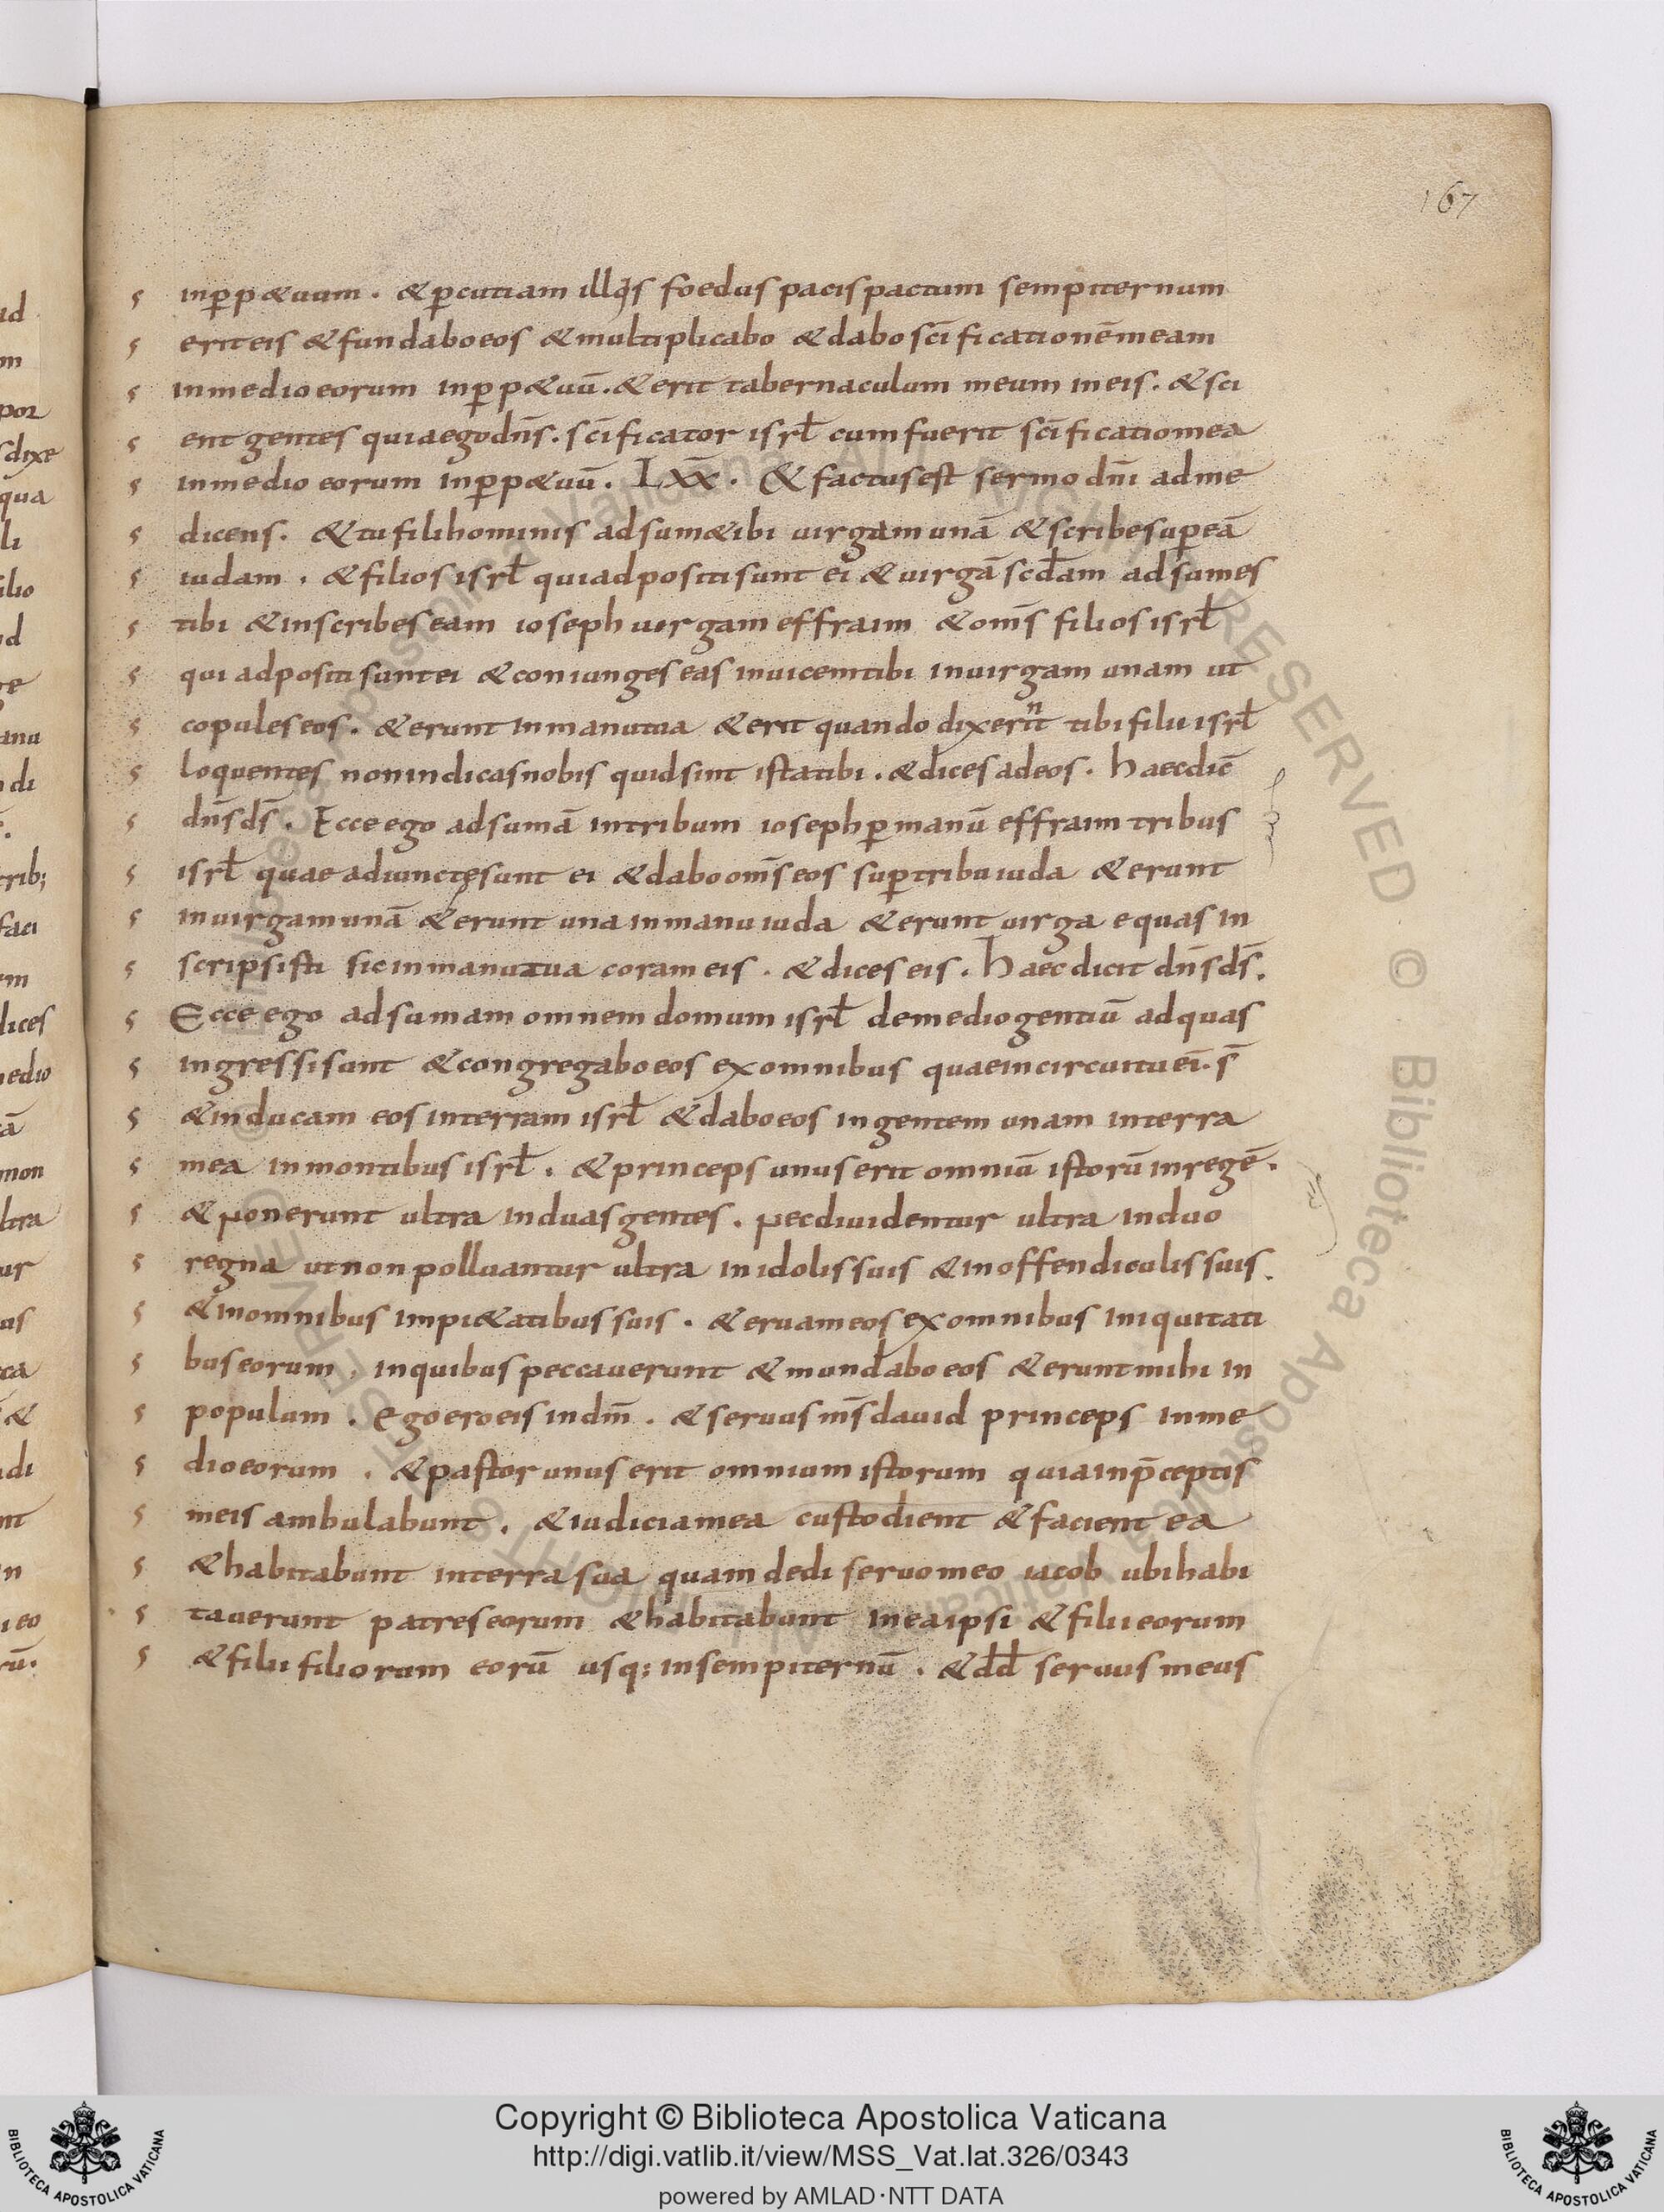 167
inꝑpetuum · & ꝑcutiam illis foedus pacis pactum sempiternum
erit eis & fundabo eos & multiplicabo & dabo sc̄ificationē meam
in medio eorum inꝑp&uū · & erit tabernaculum meum in eis · & sci
ent gentes quia ego dn̄s · sc̄ificator isrł cum fuerit sc̄ificatio mea
in medio eorum inꝑp&uū · Lxx̄ · & factus est sermo dn̄i ad me
dicens · & tu fili hominis adsum& ibi uirgam unā & scribe suꝑ eā
iudam · & filios isrł qui adpositi sunt ei & uirgā scđam adsumes
tibi & inscribes eam ioseph uirgam effraim & om̄s filios isrł
qui adpositi sunt ei & coniunges eas inuicem tibi in uirgam unam ut
copules eos · & erunt in manu tua & erit quando dixerint tibi filii isrł
loquentes non indicas nobis quid sint ista tibi · & dices ad eos · haec dic̄
dn̄s ds̄ · Ecce ego adsumā in tribum ioseph ꝑ manū effraim tribus
isrł quae adiunctę sunt ei & dabo om̄s eos suꝑ tribu iuda & erunt
in uirgam unā & erunt una in manu iuda & erunt uirga e quas in
scripsisti sic in manu tua coram eis · & dices eis · haec dicit dn̄s ds̄ ·
Ecce ego adsumam omnem domum isrł de medio gentiū ad quas
ingressi sunt & congregabo eos ex omnibus quae in circuitu ei · s̄
& inducam eos in terram isrł & dabo eos in gentem unam in terra
mea in montibus isrł · & princeps unus erit omniū istorū in regē ·
& ponerunt ultra in duas gentes · nec diuidentur ultra in duo
regna ut non polluantur ultra in idolis suis & in offendiculis suis ·
& in omnibus impi&atibus suis · & eruam eos ex omnibus iniquitati
bus eorum · in quibus peccauerunt & mundabo eos & erunt mihi in
populum · ego ero eis in dm̄ · & seruus ms̄ dauid princeps in me
dio eorum · & pastor unus erit omnium istorum quia in p̄ceptis
meis ambulabunt · & iudicia mea custodient & facient ea
& habitabunt in terra sua quam dedi seruo meo iacob ubi habi
tauerunt patres eorum & habitabunt in ea ipsi & filii eorum
& filii filiorum eorū usq; in sempiternū · & dđ seruus meus
Copyright © Biblioteca Apostolica Vaticana
http://digi.vatlib.it/view/MSS_Vat.lat.326/0343
powered by AMLAD·NTT DATA
BIBLIOTECA APOSTOLICA VATICANA
BIBLIOTECA APOSTOLICA VATICANA